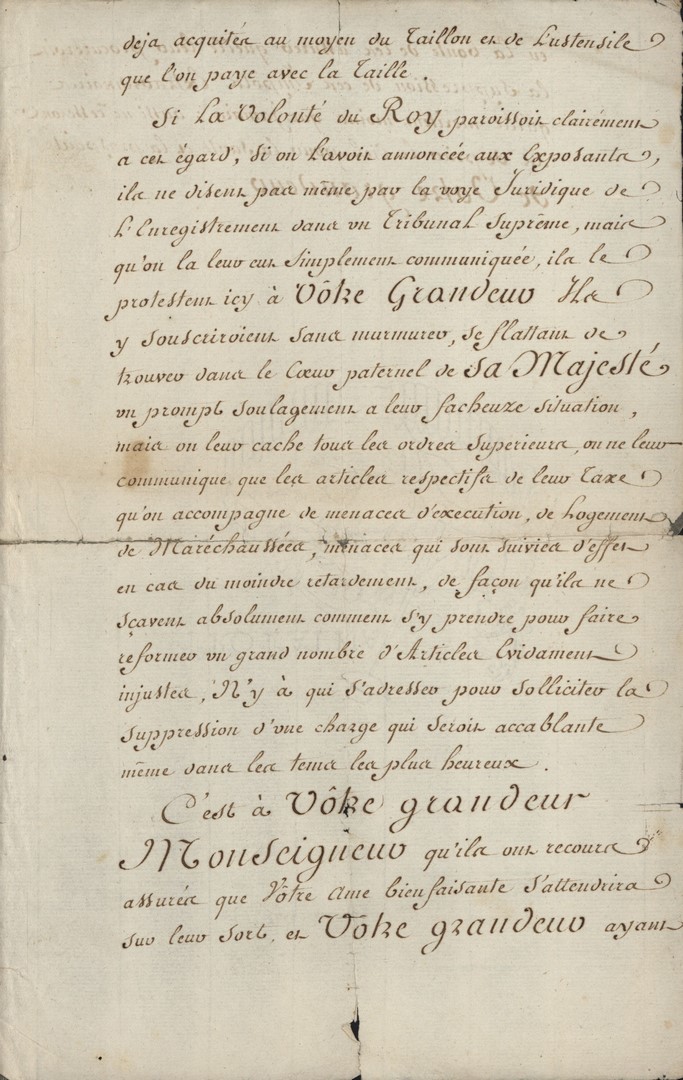 deja acquités au moyen du Taillon et de L'ustensile
que l'on paye avec la Taille.
Si La Volonté du Roy paroissoit clairément
a cet égard, si on L'avoit annoncée aux Exposants,
ils ne disent pas même par la voye Juridique de
L'Enregistrement dans un Tribunal Suprême, mais
qu'on la leur eut simplement communiquée, ils le
protestent icy à Vôtre Grandeur Ils
y souscriroient sans murmurer, se flattant de
trouver dans le Cœur paternel de sa Majesté
un prompt soulagement a leur facheuze situation,
mais on leur cache tous les ordres superieurs, on ne leur
communique que les articles respectifs de leur Taxe
qu'on accompagne de menaces d'execution, de Logement
de Maréchaussées, menaces qui sont suivies d'effet
en cas du moindre retardement, de façon qu'ils ne
sçavent absolument comment s'y prendre pour faire
reformer un grand nombre d'Articles Evidament
injustes, N'y à qui s'adresser pour solliciter la
suppression d'une charge qui seroit accablante
même dans les tems les plus heureux.
C'est à Vôtre grandeur
Monseigneur qu'ils ont recours
assurés que Vôtre ame bienfaisante s'attendrira
sur leur sort, et Votre grandeur ayant